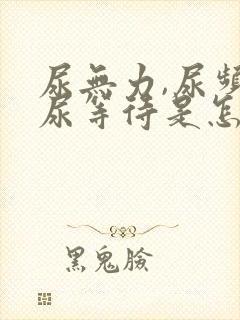 尿無力,尿頻
尿等待是怎
黑鬼臉